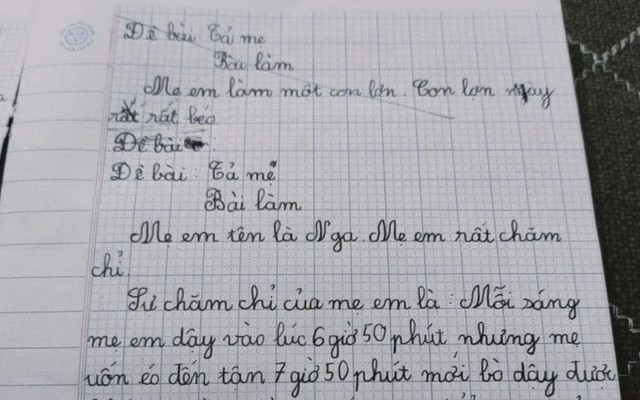 Đề bài Tả mẹ
Bài làm
Mẹ em làm một con lợn. Con lợn này
rất rất béo
Đề bài :
Đề bài : Tả mẹ
Bài làm
Mẹ em tên là Nga. Mẹ em rất chăm
chỉ.
Sự chăm chỉ của mẹ em là : Mỗi sáng
mẹ em dậy vào lúc 6 giờ 50 phút nhưng mẹ
uốn éo đến tận 7 giờ 50 phút mới bò dậy được